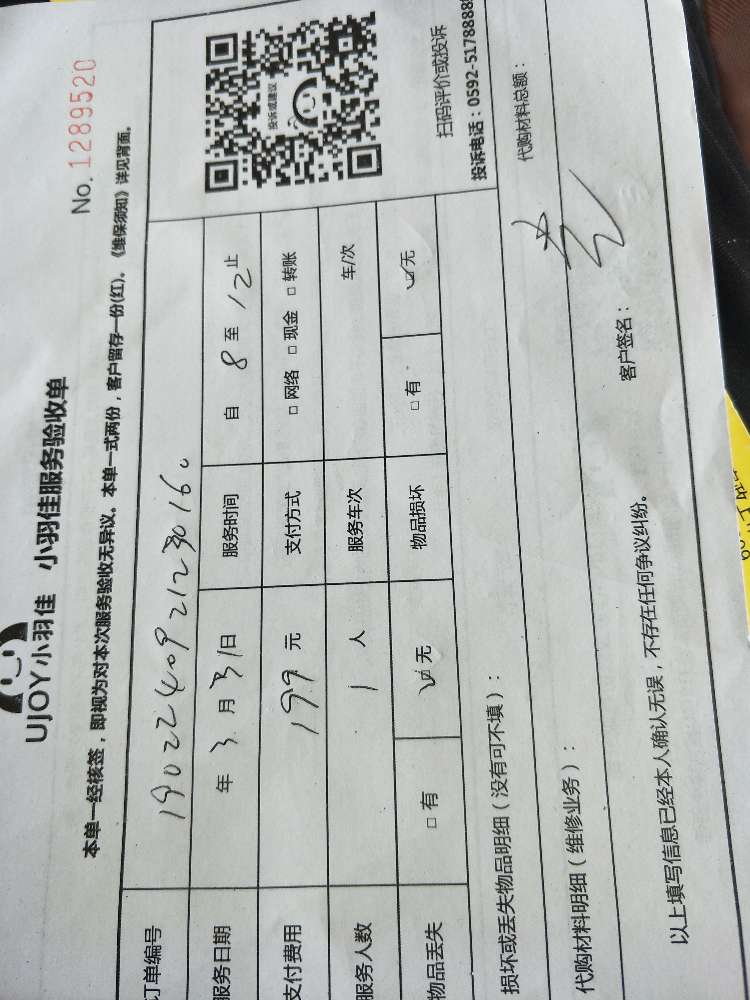 UJOY小羽佳 小羽佳服务验收单
No. 1289520
本单一经核签，即视为对本次服务验收无异议。本单一式两份，客户留存一份(红)。《维保须知》详见背面。
订单编号 19022409212301 6。
服务日期 年 3 月 31 日 服务时间 自 8 至 12 止
支付费用 199 元 支付方式 □ 网络 □ 现金 □ 转账
服务人数 1 人 服务车次 车/次
物品丢失 □ 有 ☑ 无 物品损坏 □ 有 ☑ 无
投诉或建议
扫码评价或投诉
投诉电话：0592-5178888
损坏或丢失物品明细（没有可不填）：
代购材料明细（维修业务）： 代购材料总额：
以上填写信息已经本人确认无误，不存在任何争议纠纷。 客户签名：